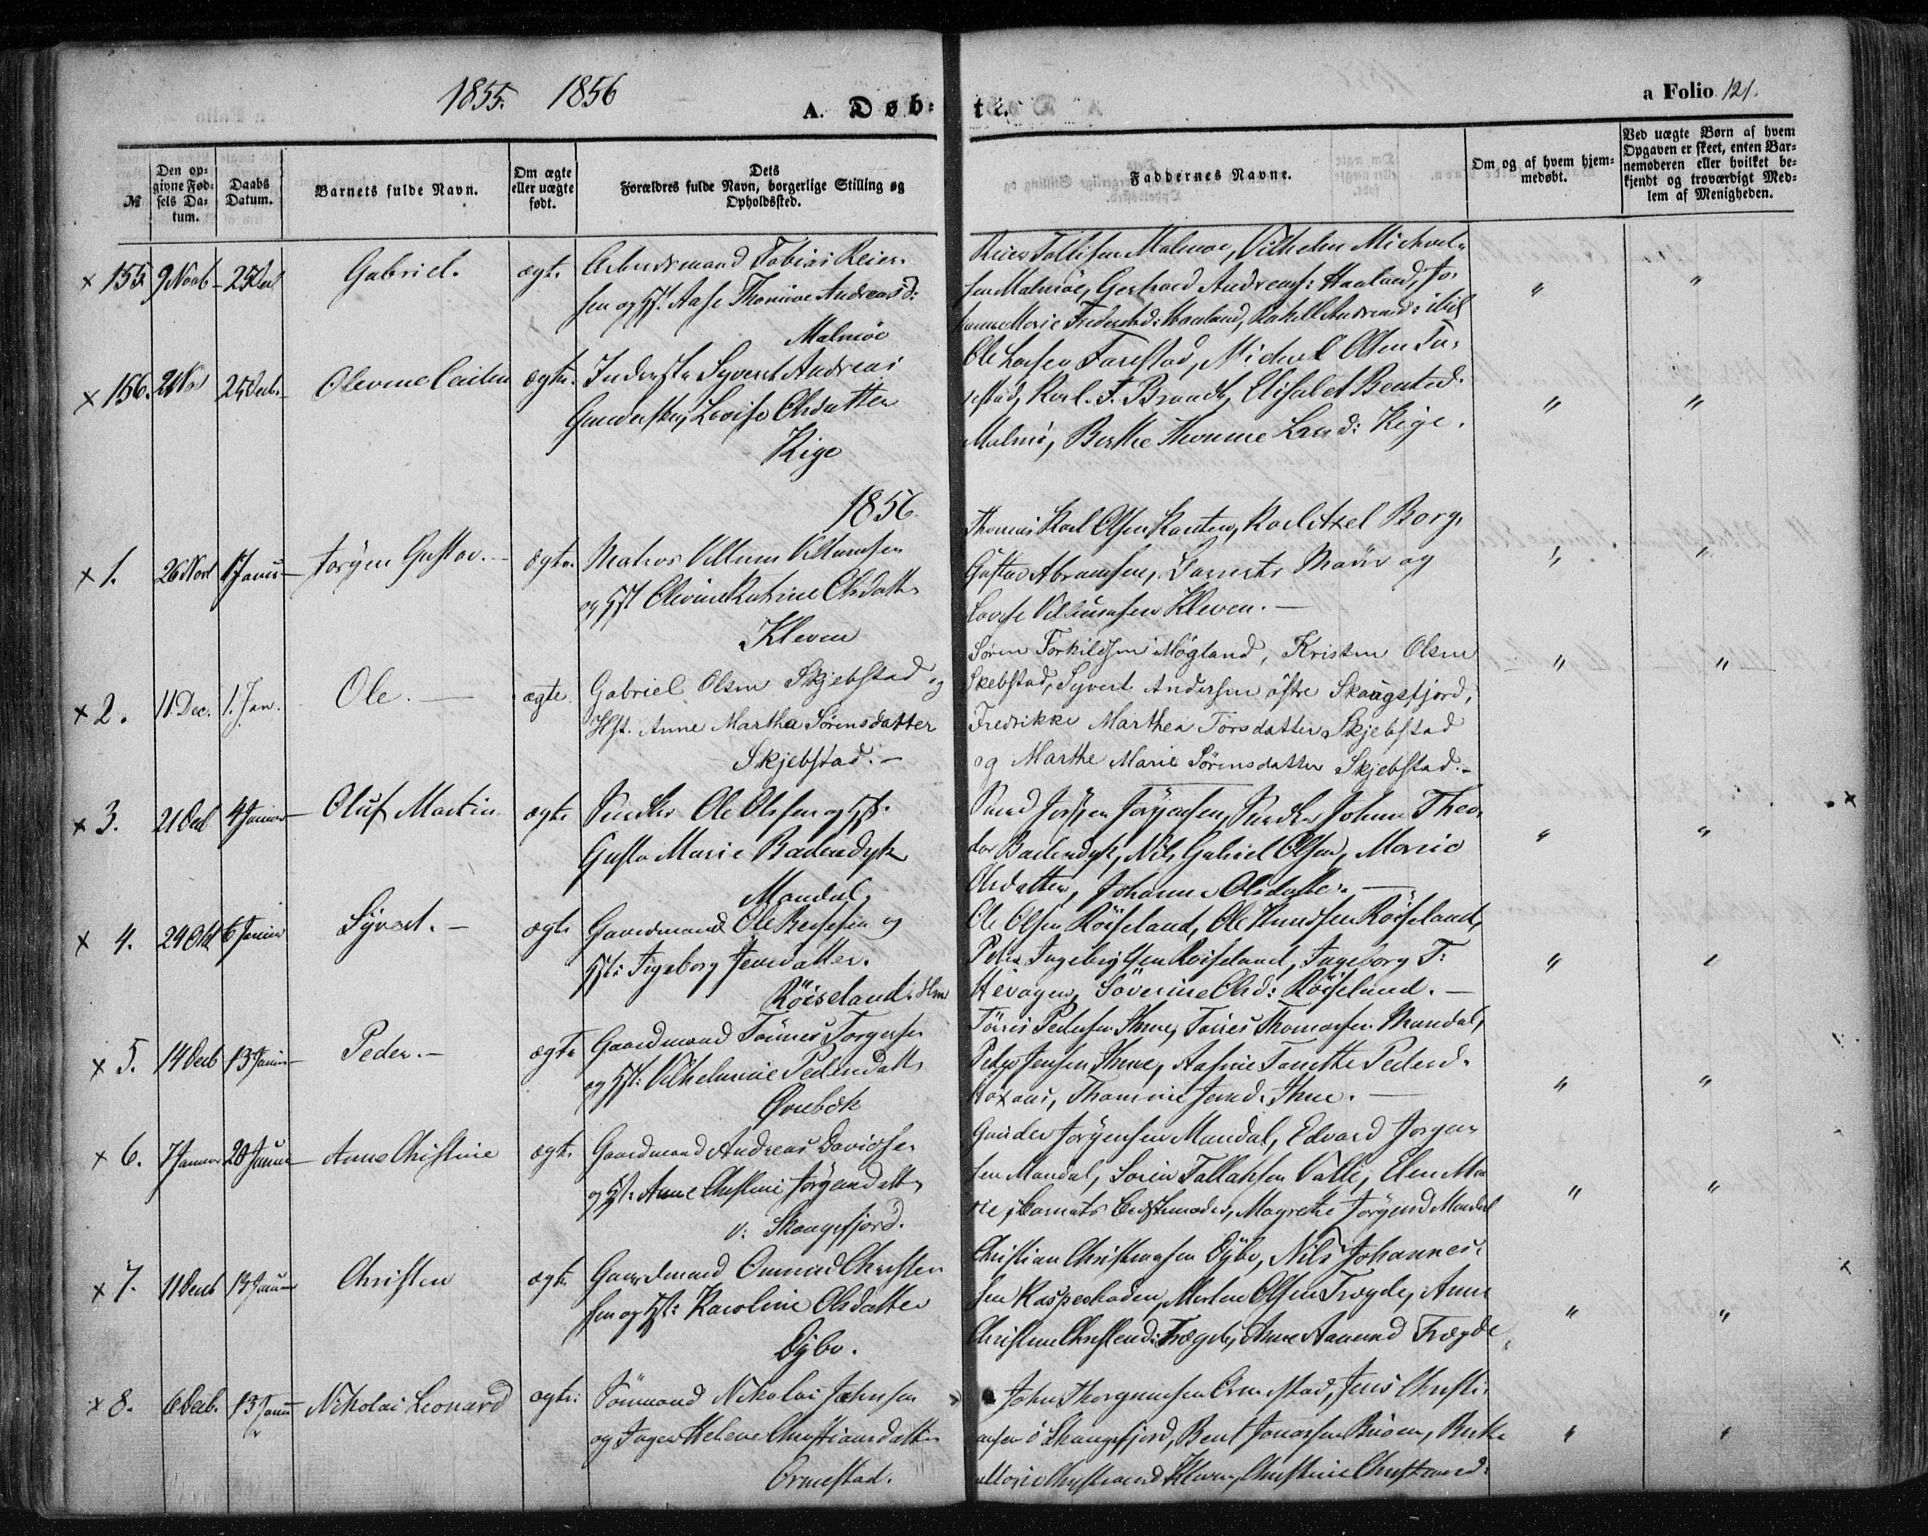 1855. 1856
A. Døb- te.
a Folio 121.
№
Den opgivne Fødsels Datum.
Daabs Datum.
Barnets fulde Navn.
Om ægte eller uægte født.
Dets Forældres fulde Navn, borgerlige Stilling og Opholdssted.
Faddernes Navne.
Om og af hvem hjemmedøbt.
Ved uægte Børn af hvem Opgaven er skeet, enten Barnemoderen eller hvilket bekjendt og troværdigt Medlem af Menigheden.
x 155 9 Novb 25 Decb Gabriel. ægte Arbeidsmand Tobias Reier-
sen og Hst. Aase Thomine Andreasd:
Malmøe
Reier Tallefsen Malmøe, Vilhelm Michael-
sen Malmøe, Gerhard Andreass: Haaland, Jo-
hanne Marie Haaland, Rakel Andreasd: ibid
" "
x 156. 25 Decb. Olevine ægte. Inderste Syvert Andreas
Gundersen, Lovise Olsdatter
Kige
Ole Larsen Farestad, Michael Olsen Fa-
restad, Karl. F. Brandt, Elisabet Bentsd.
Malmø, Berthe Thomine Larsd: Kige.
" "
1856
x 1. 26 Novb 1 Januar Jørgen Gustav. ægte. Matros Villum Villumsen
og Hst Olevine Katrine Olsdatter
Kleven
Thomas Karl Olsen, Karl Axel Borg,
Gustav Abramsen, Barnets Moder og
Lovise Villumsen Kleven.
" "
x 2. 11 Dec. 1. Jan. Ole. ægte. Gabriel Olsen Skjebstad og
Hst. Anne Martha Sørensdatter
Skjebstad.
Søren Torkildsen Møgland, Kristen Olsen
Skebstad, Syvert Andersen østre Skaugsfjord,
Fredrikke Marthea Torsdatter Skjebstad
og Marthe Marie Sørensdatter Skjebstad.
" "
x 3. 21 Decb 4 Januar Oluf Martin ægte Snedker Ole Olsen og Hst.
Gusta Marie Badendyk
Mandal,
Jørgensen, Snedker Johan Theo-
dor Badendyk, Nils Gabriel Olsen, Marie
Olsdatter, Johanne Olsdatter.
" "
x 4. 24 Okt 6 Januar Syvert. ægte Gaardmand Ole og
Hst: Ingeborg Jensdatter.
Røiseland i Hlm
Ole Olsen Røiseland, Ole Knudsen Røiseland,
Peder Røiseland, Ingeborg T:
Søverine Olsd: Røiseland.
"
x 5. 14 Decb 13 Januar Peder. ægte Gaardmand Tønnes Torgersen
og Hst: Vilhelmine Pedersdatter
Øvrebæk
Tørris Pedersen Ihme, Tørres Thomassen Mandal,
Peder Jensen Ihme, Tonette Pedersd.
Thomine Jensd. Ihme.
" "
x 6. 7 Januar 20 Januar Anne Christine ægte Gaardmand Andreas Davidsen
og Hst. Anne Christine Jørgensdatter
v: Skaugsfjord.
Gunder Jørgensen Mandal, Edvard Jørgen-
sen Mandal, Søren Tallaksen Valle, Elen Ma-
rie, Barnets Bedstemoder, Magrethe Jørgensd Mandal
" "
x 7. 11 Decb 13 Januar Christen ægte. Gaardmand Ommund Christen-
sen og Hst: Karoline Olsdatter
Dybo.
Christian Christensen Dybo, Nils Johannes-
sen, Morten Olsen Trægde, Anne
Christine Christensd: Trægde, Anne Aanensd Trægde
" "
x 8. 6 Decb. 13 Januar Nikolai Leonard ægte. Sømand Nikolai Jahnsen
og Inger Helene Christiansdatter
Ormestad.
John Thorgrimsen Ormestad, Jens Christi-
ansen ø Skaugsfjord, Bent Jonassen Buøen, Berthe
Marie Christiansd Kleven, Christine Christiansd:
" "